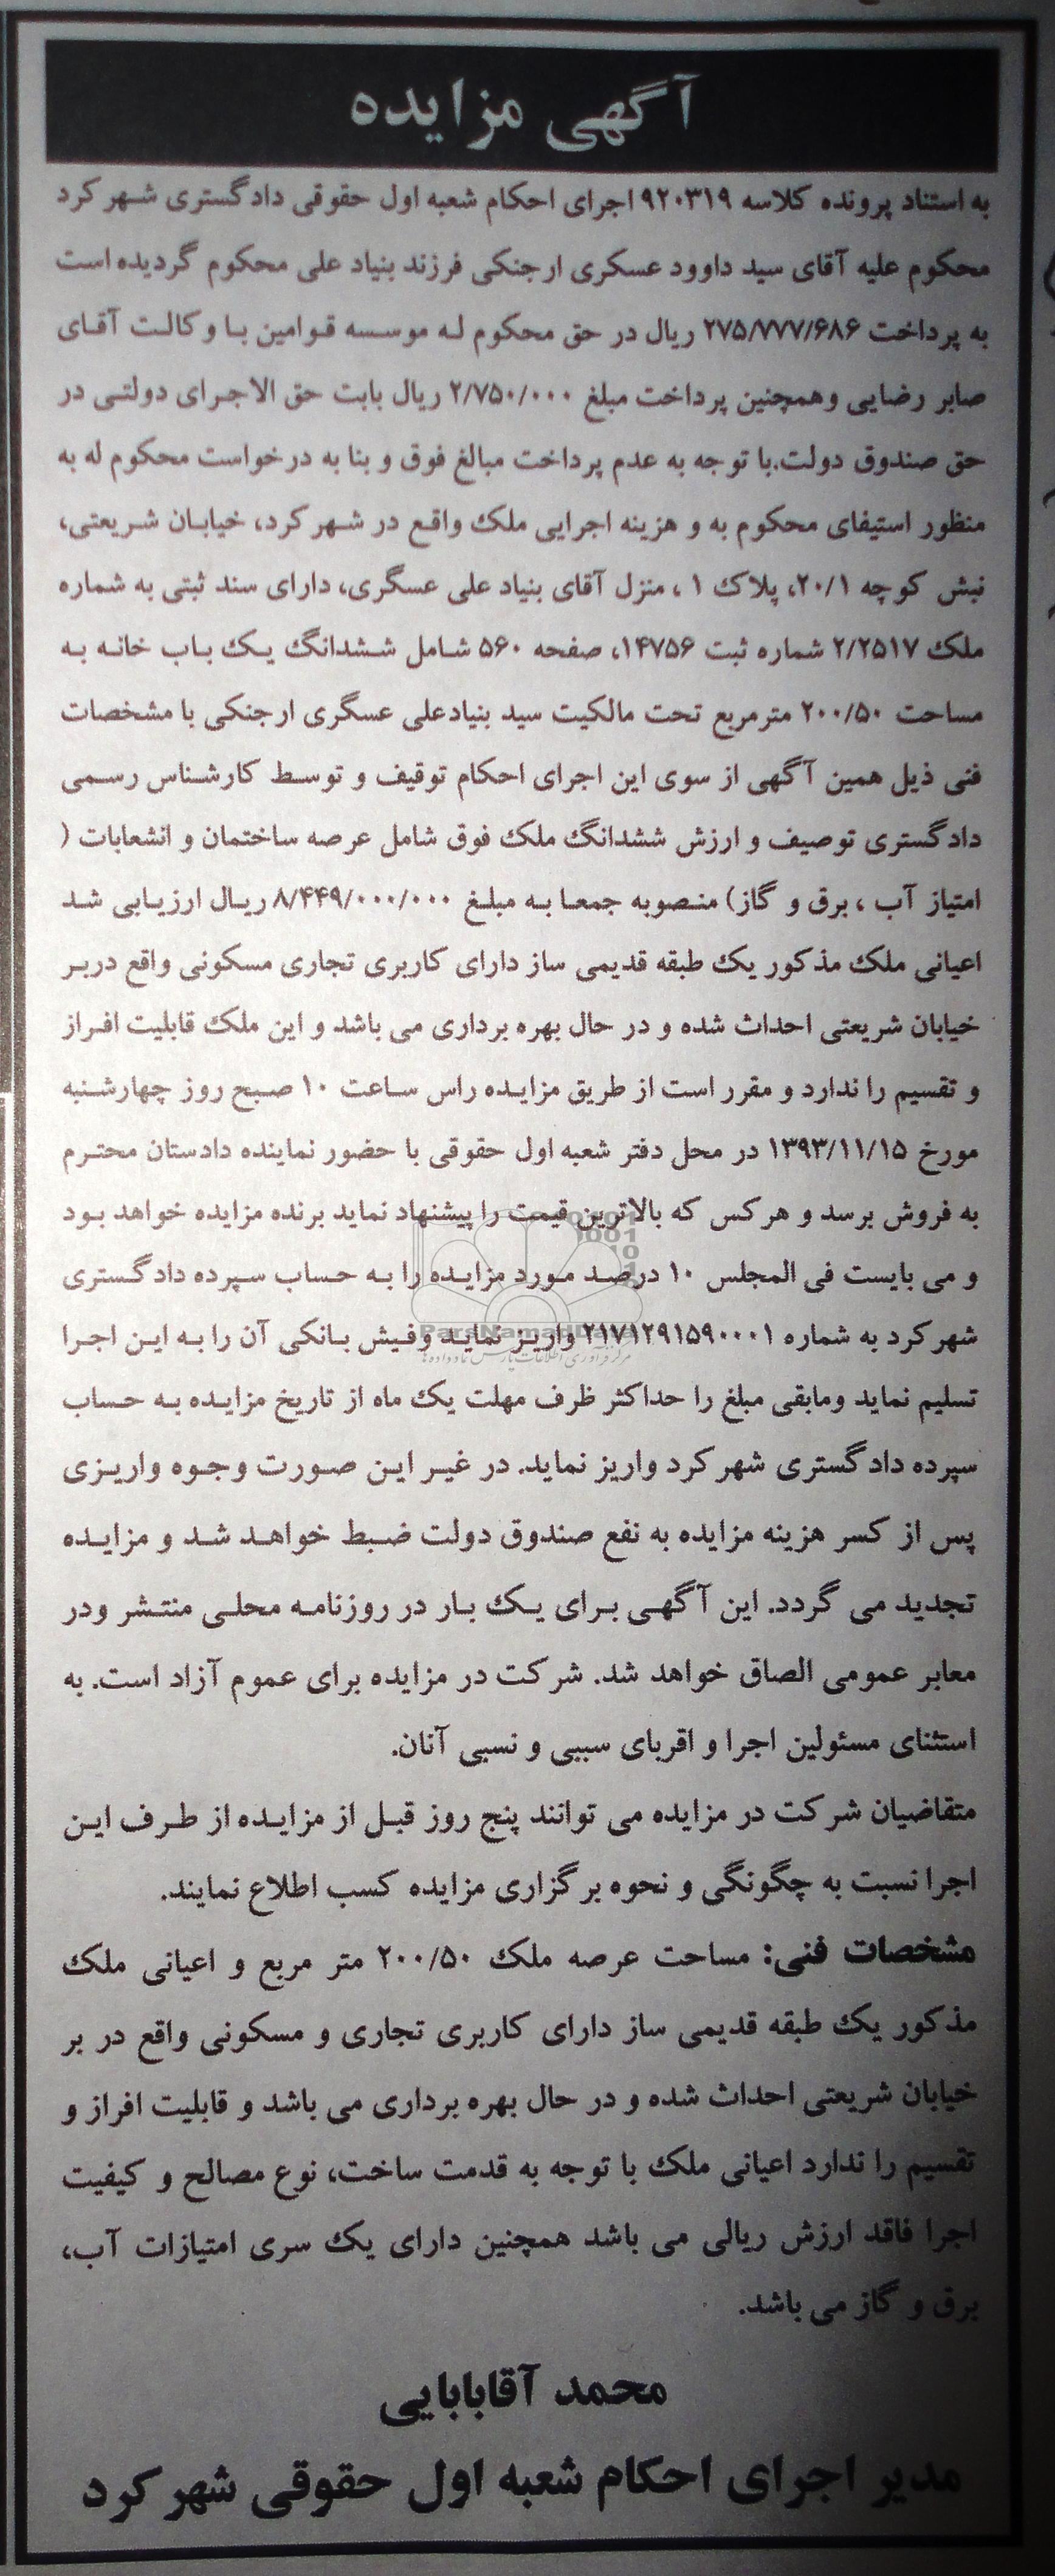 آگهی مزایده
به استناد پرونده کلاسه ۹۲۰۳۱۹ اجرای احکام شعبه اول حقوقی دادگستری شهرکرد
محکوم علیه آقای سید داوود عسکری ارجنکی فرزند بنیاد علی محکوم گردیده است
به پرداخت ۲۷۵/۷۷۷/۶۸۶ ریال در حق محکوم له موسسه قوامین با وکالت آقای
صابر رضایی وهمچنین پرداخت مبلغ ۲/۷۵۰/۰۰۰ ریال بابت حق الاجرای دولتی در
حق صندوق دولت.با توجه به عدم پرداخت مبالغ فوق و بنا به درخواست محکوم له به
منظور استیفای محکوم به و هزینه اجرایی ملک واقع در شهرکرد، خیابان شریعتی،
نبش کوچه ۲۰/۱، پلاک ۱ ، منزل آقای بنیاد علی عسگری، دارای سند ثبتی به شماره
ملک ۲/۲۵۱۷ شماره ثبت ۱۴۷۵۶، صفحه ۵۶۰ شامل ششدانگ یک باب خانه به
مساحت ۲۰۰/۵۰ مترمربع تحت مالکیت سید بنیادعلی عسگری ارجنکی با مشخصات
فنی ذیل همین آگهی از سوی این اجرای احکام توقیف و توسط کارشناس رسمی
دادگستری توصیف و ارزش ششدانگ ملک فوق شامل عرصه ساختمان و انشعابات (
امتیاز آب ، برق و گاز) منصوبه جمعا به مبلغ ۸/۴۴۹/۰۰۰/۰۰۰ ریال ارزیابی شد
اعیانی ملک مذکور یک طبقه قدیمی ساز دارای کاربری تجاری مسکونی واقع دربر
خیابان شریعتی احداث شده و در حال بهره برداری می باشد و این ملک قابلیت افراز
و تقسیم را ندارد و مقرر است از طریق مزایده راس ساعت ۱۰ صبح روز چهارشنبه
مورخ ۱۳۹۳/۱۱/۱۵ در محل دفتر شعبه اول حقوقی با حضور نماینده دادستان محترم
به فروش برسد و هرکس که بالاترین قیمت را پیشنهاد نماید برنده مزایده خواهد بود
و می بایست فی المجلس ۱۰ درصد مورد مزایده را به حساب سپرده دادگستری
شهرکرد به شماره ۲۱۷۱۲۹۱۵۹۰۰۰۱ واریز نماید وفیش بانکی آن را به این اجرا
تسلیم نماید ومابقی مبلغ را حداکثر ظرف مهلت یک ماه از تاریخ مزایده به حساب
سپرده دادگستری شهرکرد واریز نماید. در غیر این صورت وجوه واریزی
پس از کسر هزینه مزایده به نفع صندوق دولت ضبط خواهد شد و مزایده
تجدید می گردد. این آگهی برای یک بار در روزنامه محلی منتشر ودر
معابر عمومی الصاق خواهد شد. شرکت در مزایده برای عموم آزاد است. به
استثنای مسئولین اجرا و اقربای سببی و نسبی آنان.
متقاضیان شرکت در مزایده می توانند پنج روز قبل از مزایده از طرف این
اجرا نسبت به چگونگی و نحوه برگزاری مزایده کسب اطلاع نمایند.
مشخصات فنی: مساحت عرصه ملک ۲۰۰/۵۰ متر مربع و اعیانی ملک
مذکور یک طبقه قدیمی ساز دارای کاربری تجاری و مسکونی واقع در بر
خیابان شریعتی احداث شده و در حال بهره برداری می باشد و قابلیت افراز و
تقسیم را ندارد اعیانی ملک با توجه به قدمت ساخت، نوع مصالح و کیفیت
اجرا فاقد ارزش ریالی می باشد همچنین دارای یک سری امتیازات آب،
برق و گاز می باشد.
محمد آقابابایی
مدیر اجرای احکام شعبه اول حقوقی شهرکرد